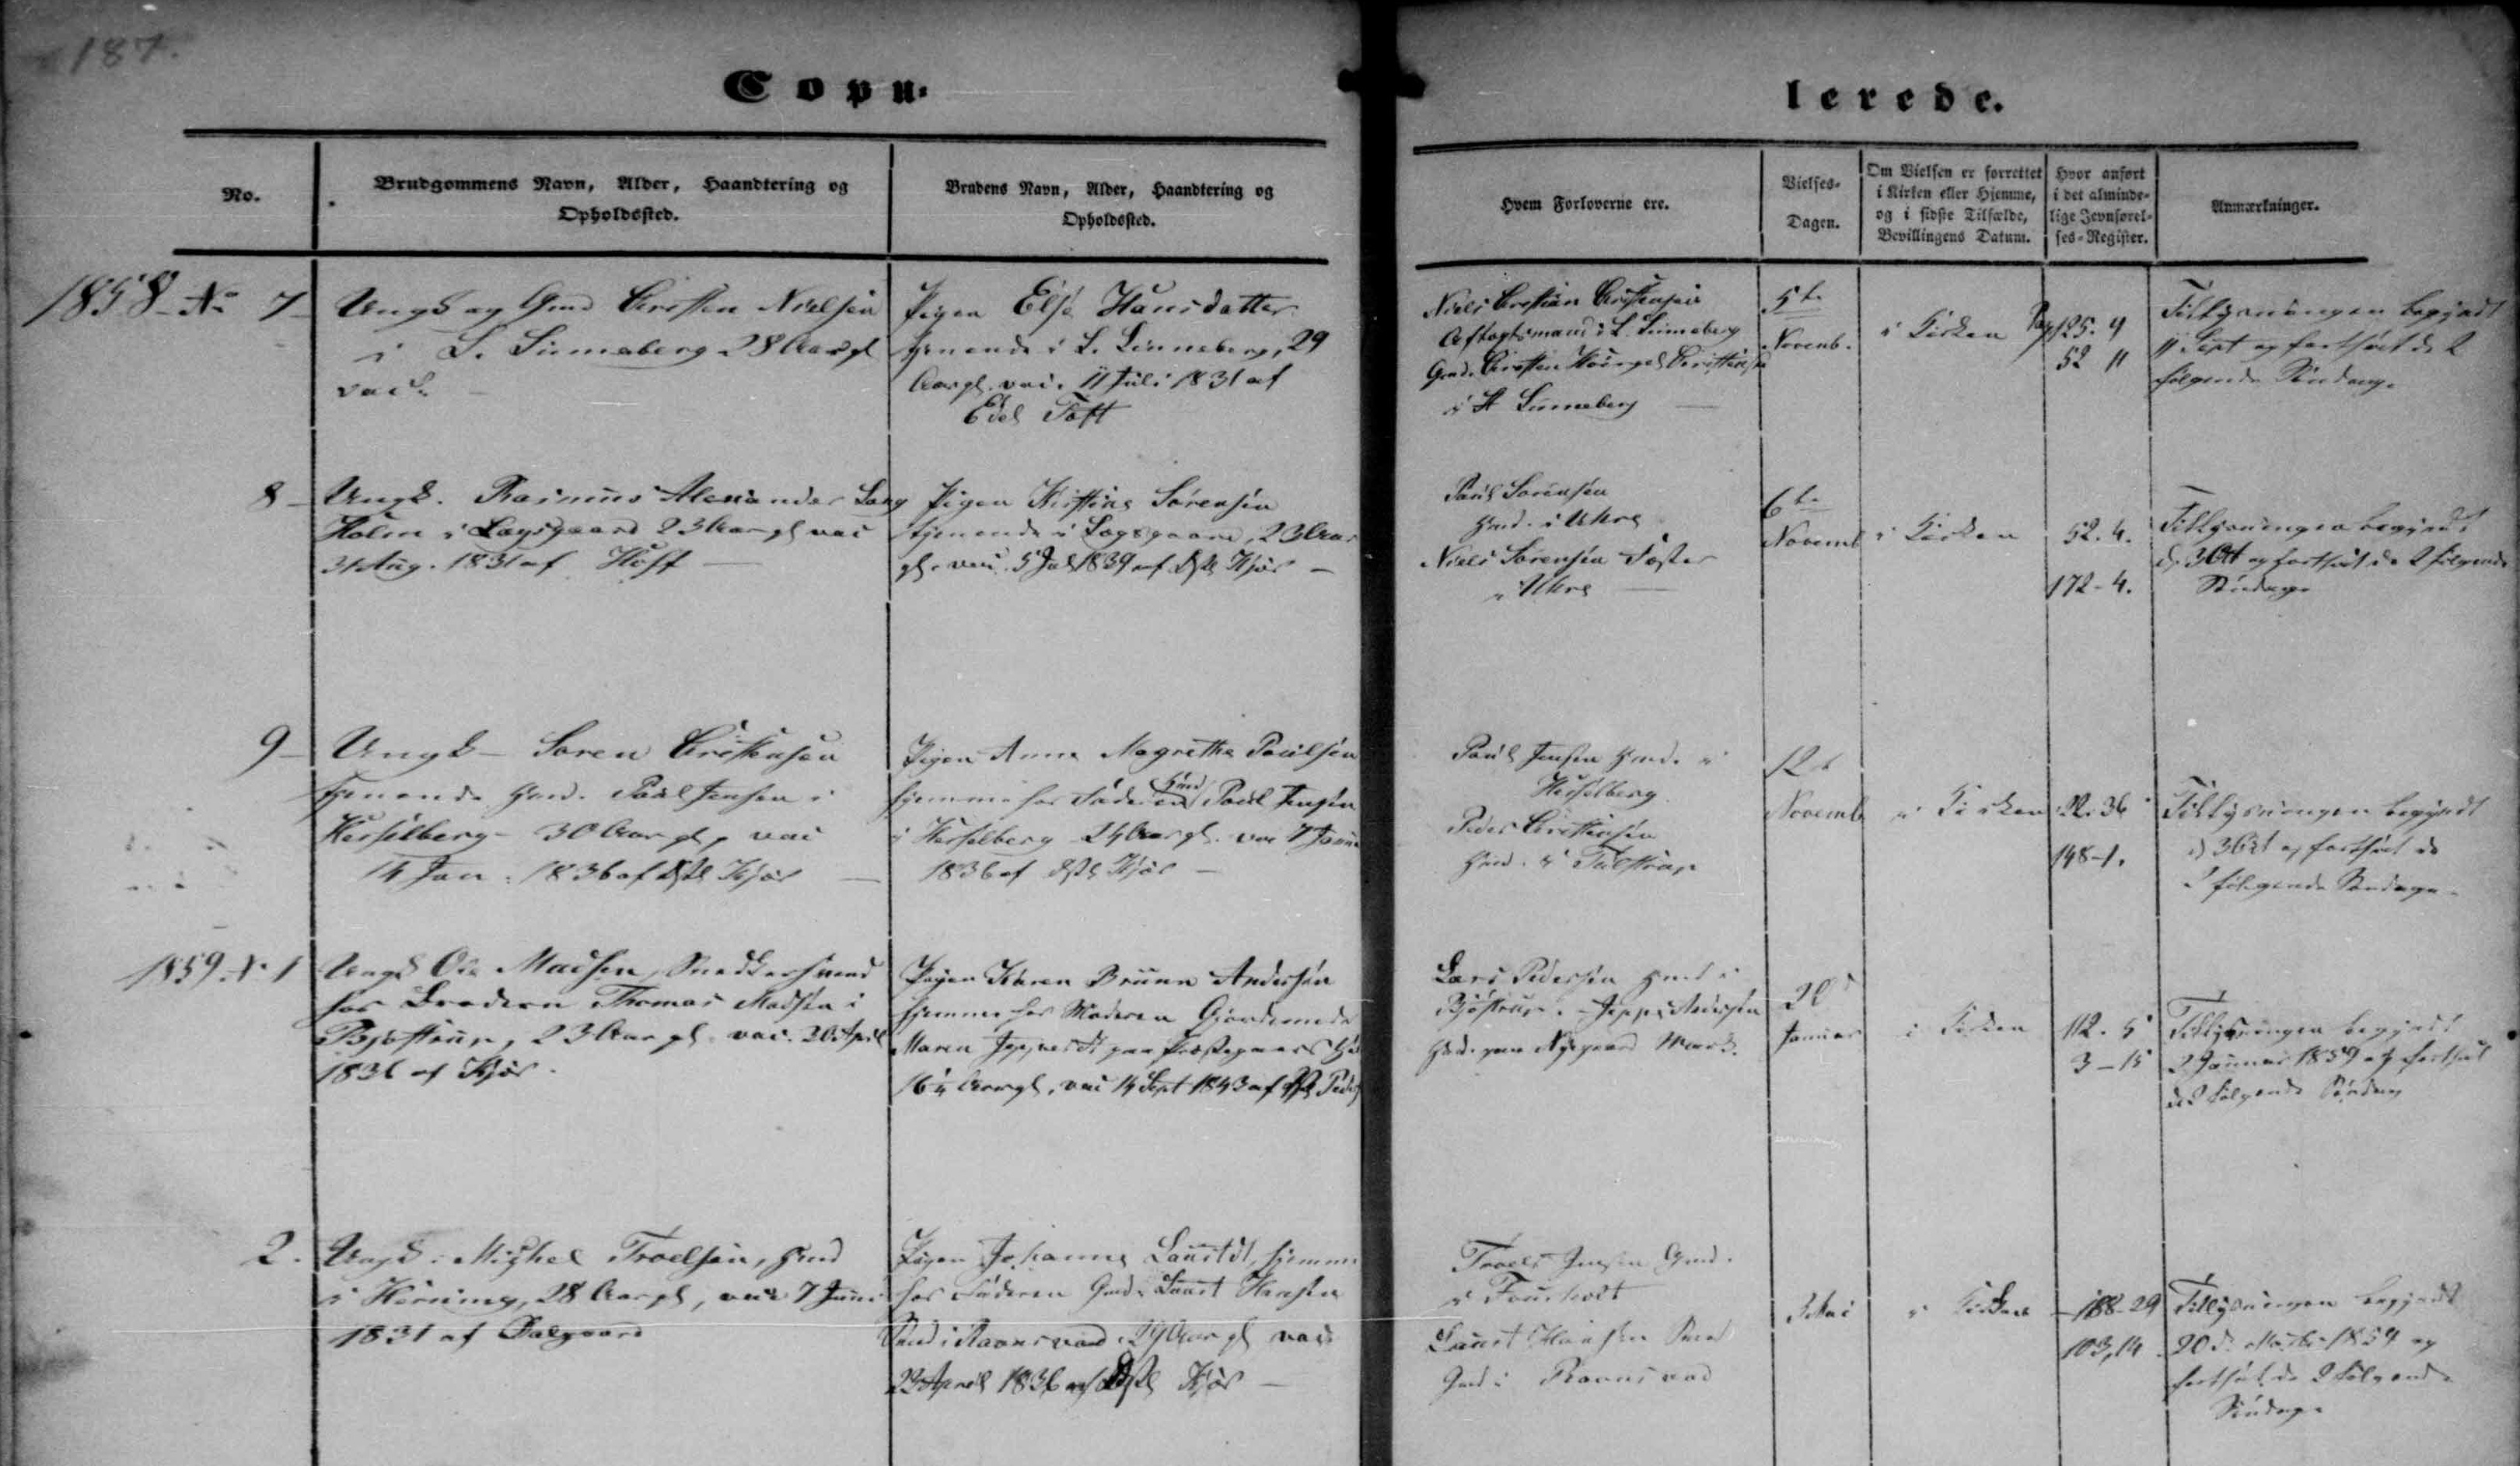 187.
Copu-
lerede.
No.
Brudgommens Navn, Alder, Haandtering og
Opholdssted.
Brudens Navn, Alder, Haandtering og
Opholdssted.
Hvem Forloverne ere.
Vielses-
Dagen.
Om Vielsen er forrettet
i Kirken eller Hjemme,
og i sidste Tilfælde,
Bevillingens Datum.
Hvor anført
i det alminde-
lige Jevnførel-
ses-Register.
Anmærkninger.
1858 No 7
Ungk og Gmd Christen Nielsen
i L. Linneberg 28 Aar gl
vac.
Pigen Else Hansdatter
tjenende i L. Linneberg, 29
Aar gl. vac. 11 Juli 1831 af
Toft
Niels Christian Christensen
Aftægtsmand i L. Linneberg
Gmd. Christen Christensen
i St Linneberg
5te
Novemb.
i Kirken
Pag 125. 4
52 11
Tillysningen begyndt
11 Sept og fortsat de 2
følgende Søndage
8
Ungk. Rasmus Alexander Lang
Holm i Lægsgaard 23 Aar gl vac
31 Aug. 1831 af Hoff
Pigen Kirstine Sørensen
tjenende i Lægsgaard, 23 Aar
gl. vac. 5 Juli 1839 af Kjær
Poul Sørensen
Hmd. i Uhre
Niels Sørensen Fæster
i Uhre
6te
Novemb
i Kirken
52. 4.
172-4.
Tillysningen begyndt
d. 3 Oct og fortsat de 2 følgende
Søndage
9
Ungk Søren Christensen
tjenende Hmd. Poul Jensen i
Hesselberg 30 Aar gl, vac
14 Jan. 1836 af Kjær
Pigen Anne Magrethe Poulsen
hjemme hos Faderen Hmd Poul Jensen
i Hesselberg 24 Aar gl. vac 7 Januar
1836 af Kjær
Poul Jensen Hmd. i
Hesselberg
Peder Christensen
Hmd. i Tulstrup
12t
Novemb
i Kirken
22. 36
148-1.
Tillysningen begyndt
d 3 Oct og fortsat de
2 følgende Søndage
1859. No 1
Ungk Ole Madsen, Snedkersvend
hos Broderen Thomas Madsen i
23 Aar gl. vac. 20 April
1836 af Kjær.
Pigen Karen Brunn Andersen
hjemme hos Moderen Gaardmand
Maren
16½ Aar gl, vac 14 Sept 1843 af
Lars Pedersen Hmd i
Jeppe Andersen
Hmd. paa Nygaard Mark.
20
Januar
i Kirken
112. 5
3-15
Tillysningen begyndt
2 Januar 1859 og fortsat
de 2 følgende Søndage
2.
Ungk. Michel Troelsen, Hmd
i Herning, 28 Aar gl, vac 7 Juni
1831 af Dalgaard
Pigen Johanne Laustdt, hjemme
hos Faderen Gmd. Laust Hansen
Smed i Ravnsvad 24 Aar gl vac.
22 April 1836 af Kjær
Troels Jensen Gmd.
i Fourholt
Laust Hansen Smed
Gmd i Ravnsvad
Mai
i Kirken
188-29
103, 14
Tillysningen begyndt
20 d. Marts 1859 og
fortsat de 2 følgende
Søndage